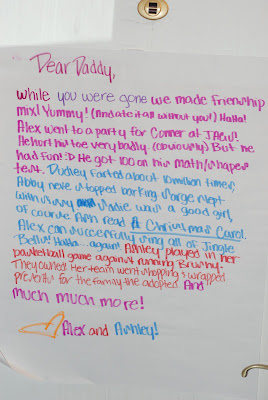 Dear Daddy,
while you were gone we made Friendship
mix! Yummy! (And ate it all without you!) HaHa!
Alex went to a party for Conner at
He hurt his toe very badly. (obviously) But he
had Fun! :D He got 100 on his Math/shapes
test. Dudley farted about 10 million times,
Abby never stopped barking, Sarge slept
with Sadie was a good girl,
of course Ann read A Christmas Carol.
Alex can successfully sing all of Jingle
Bells! HaHa... again! Ashley played in her
basketball game against running Brushy.
They owned! Her team went shopping & wrapped
presents for the family the adopted. And
much much more!
Alex and Ashley!